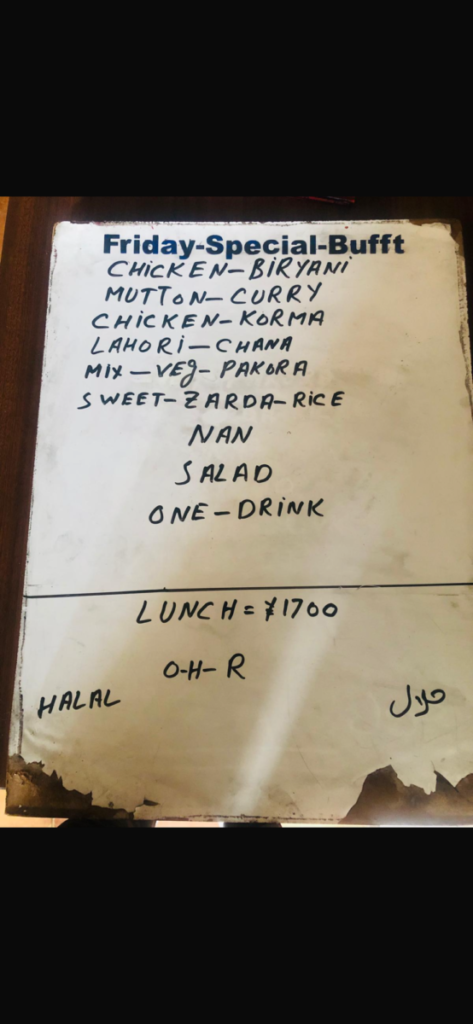 Friday-Special-Bufft
CHiCKEN-BiRYANi
MUTTON-CURRY
CHiCKEN-KORMA
LAHORi-CHANA
Mix-VEg-PAKORA
SWEET-ZARDA-RiCE
NAN
SALAD
ONE-DRiNK
LUNCH=¥1700
O-H-R
HALAL
حلال